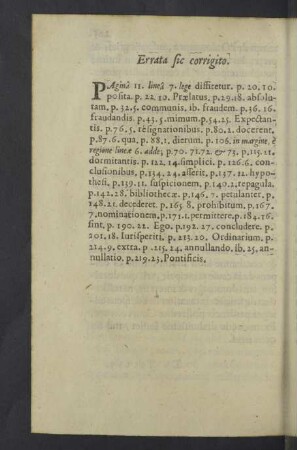 Errata sic corrigito.
PAginâ 11. lineâ 7. lege diffitetur. p. 20. 10.
posita. p. 22. 30. Prælatus. p.29.18. absolu-
tam. p. 32. 5. communis, ib. fraudem. p.36.16.
fraudandis. p.43.5.mimum.p.54.23. Expectan-
tis. p.76.5. resignationibus. p.80.2. docerent.
p.87.6. qua, p. 88.1. dierum. p. 106. in margine, è
regione lineæ 6. adde; p.70. 71.72. & 73. p.113.11.
dormitantis. p. 122. 14. simplici. p. 126.6. con-
clusionibus, p.154. 24. asserit, p.137. 12. hypo-
thesi, p.139.11. suspicionem, p.140.2. repagula.
p.142.28. bibliothecæ. p.146. 7. petulanter. p.
148.21. decederet. p.165 8. prohibitum, p.167.
7. nominationem, p.171.1. permittere, p.184.16.
sint, p. 190. 22. Ego. p.192. 27. concludere. p.
201.18. Iurisperiti, p. 213.20. Ordinarium, p.
214.9. extra. p. 215. 24. annullando, ib. 25. an-
nullatio. p.219.23. Pontificis.